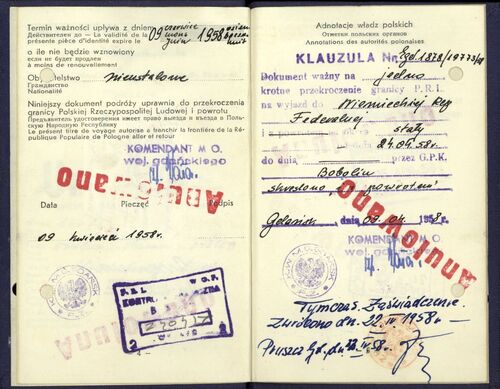 Termin ważności upływa z dniem 09 czerwiec 1958 osiem
Действителен до — La validité de la
présente pièce d'identité expire le
o ile nie będzie wznowiony
если не будет продлен
à moins de renouvellement
Obywatelstwo nieustalone
Гражданство
Nationalité
Niniejszy dokument podróży uprawnia do przekroczenia
granicy Polskiej Rzeczypospolitej Ludowej i powrotu
Предъявитель удостоверения имеет право выезда и въезда в Поль-
скую Народную Республику
Le présent titre de voyage autorise a franchir la frontière de la Ré-
publique Populaire de Pologne aller et retour
KOMENDANT M O.
woj. gdańskiego
Anulowano
Data Pieczęć Podpis
09 kwiecień 1958r.
P.R.L. W.O.P.
KONTROLA
2 2
Adnotacje władz polskich
Отметки польских органов
Annotations des autorités polonaises
KLAUZULA Nr
Dokument ważny na jedno
krotne przekroczenie granicy P.R.L.
na wyjazd do Niemieckiej Rep
Federalnej
i z powrotem stały
do dnia 24.04.58r. przez G.P.K.
skreślono "z powrotem"
Gdańsk, dnia 09.04. 1958r.
KOMENDANT M O.
woj. gdańskiego
Anulowano
Tymczas. Zaświadczenie
Zwrócono dn. 22.IV 1958r
58r.